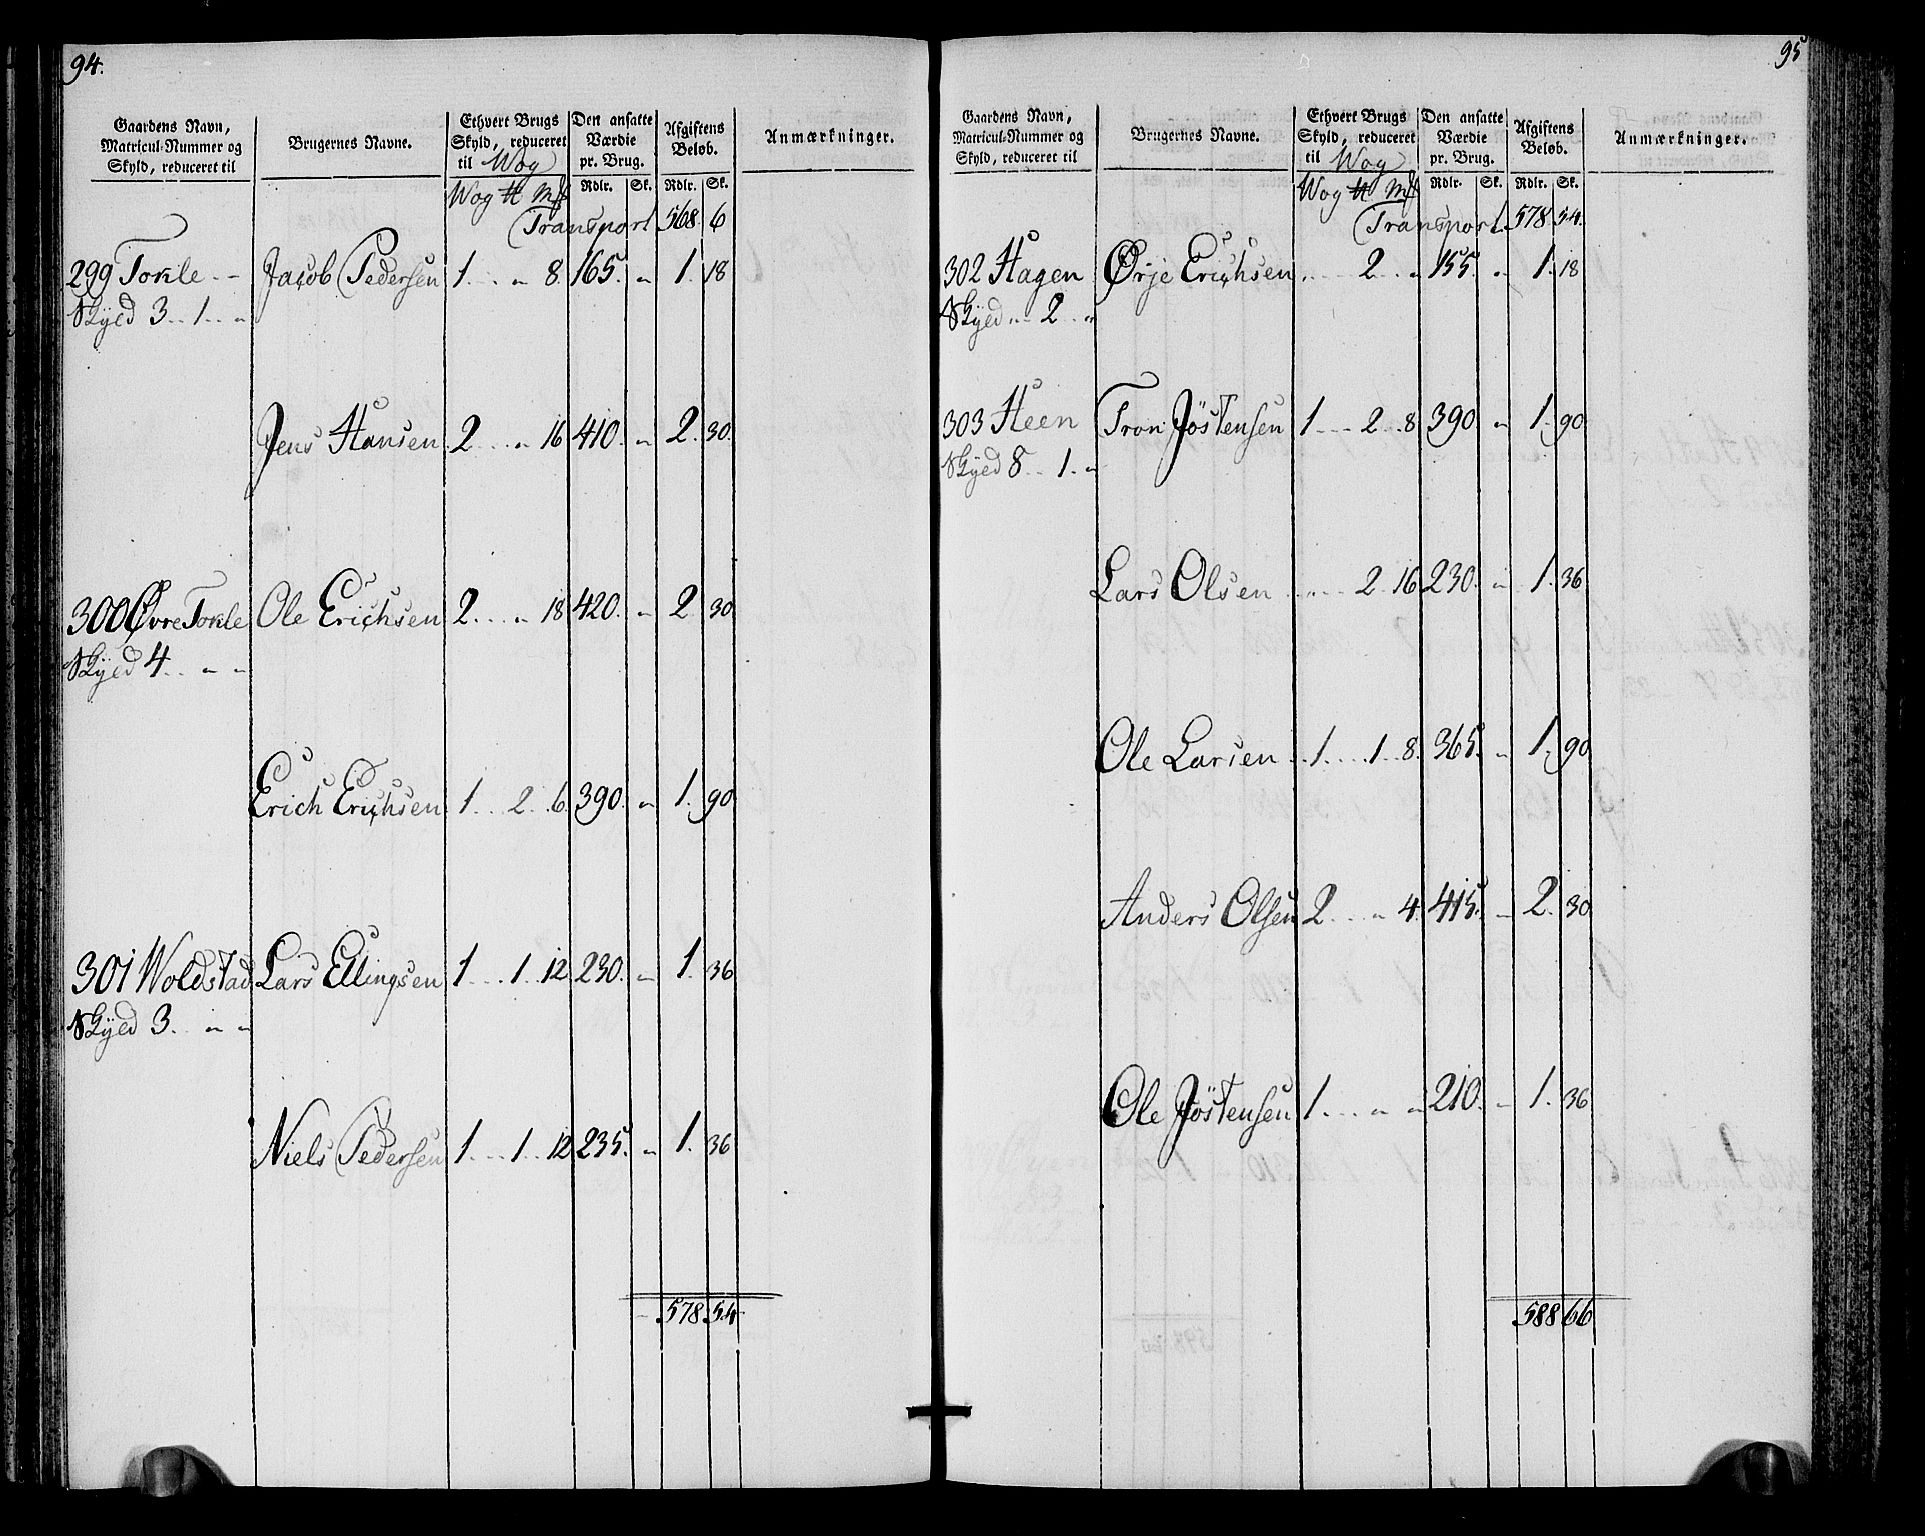 94.
Gaardens Navn, Matricul-Nummer og Skyld, reduceret til
Brugernes Navne.
Ethvert Brugs Skyld, reduceret til Wog
Den ansatte Værdie pr. Brug.
Afgiftens Beløb.
Anmærkninger.
Wog ℔ Mk Rdlr. Sk. Rdlr. Sk.
Transport 568 6
299 Tokle - - Jacob Pedersen 1 . . „ 8. 165. „ 1. 18
Skyld 3 . . 1 . . „
Jens Hansen 2 . . . „ 16 410. „ 2. 30.
300 Øvre Tokle Ole Erichsen 2 . . . „ 18 420. „ 2 30
Skyld 4 . . „ „
Erich Erichsen 1 . . . 2 . . 6. 390. „ 1. 90
301 Woldstad Lars Ellingsen 1 . . . 1 . . 12 230. „ 1. 36
Skyld 3. . „ „
Niels Pedersen 1 . . . 1 . . 12 235. „ 1. 36
578 54
95
Gaardens Navn, Matricul-Nummer og Skyld, reduceret til
Brugernes Navne.
Ethvert Brugs Skyld, reduceret til Wog
Den ansatte Værdie pr. Brug.
Afgiftens Beløb.
Anmærkninger.
Wog ℔ Mk Rdlr. Sk. Rdlr. Sk.
Transport 578 54.
302 Hagen Ørje Erichsen . . . . 2 . . „ 155. „ 1. 18
Skyld „ . . 2 . . „
303 Heen Tron Jöstensen 1 . . . 2 . . 8 390 „ 1. 90
Skyld 8 . . 1 . „
Lars Olsen . „ . . 2 16 230. „ 1. 36
Ole Larsen . . 1 . . . . 1 . . 8. 365. „ 1. 90
Anders Olsen 2 . . . „ 4. 415. „ 2. 30
Ole Jöstensen 1 . . . „ „ 210. „ 1. 36
588 66